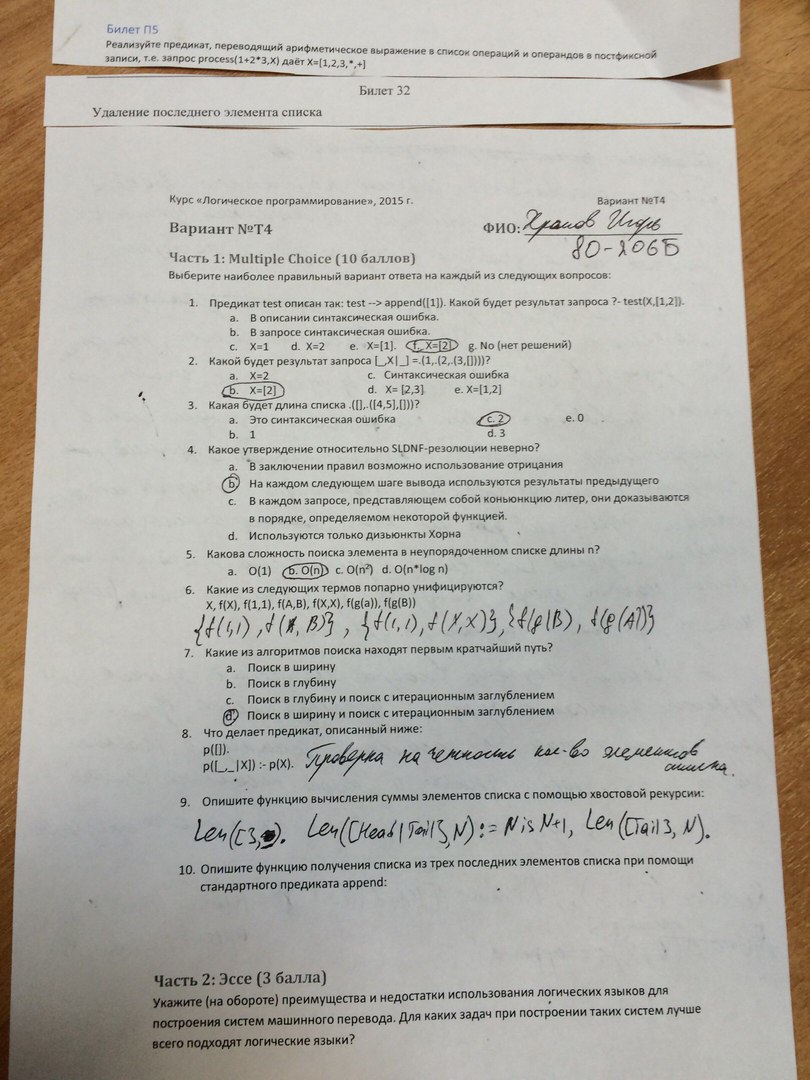 Билет П5
Реализуйте предикат, переводящий арифметическое выражение в список операций и операндов в постфиксной
записи, т.е. запрос process(1+2*3,X) даёт X=[1,2,3,*,+]
Билет 32
Удаление последнего элемента списка
Курс «Логическое программирование», 2015 г. Вариант №Т4
Вариант №Т4 ФИО: Храмов Игорь
80-206Б
Часть 1: Multiple Choice (10 баллов)
Выберите наиболее правильный вариант ответа на каждый из следующих вопросов:
1. Предикат test описан так: test --> append([1]). Какой будет результат запроса ?- test(X,[1,2]).
a. В описании синтаксическая ошибка.
b. В запросе синтаксическая ошибка.
c. X=1 d. X=2 e. X=[1]. f. X=[2] g. No (нет решений)
2. Какой будет результат запроса [_,X|_] =.(1,.(2,.(3,[])))?
a. X=2 c. Синтаксическая ошибка
b. X=[2] d. X= [2,3] e. X=[1,2]
3. Какая будет длина списка .([],.([4,5],[]))?
a. Это синтаксическая ошибка c. 2 e. 0
b. 1 d. 3
4. Какое утверждение относительно SLDNF-резолюции неверно?
a. В заключении правил возможно использование отрицания
b. На каждом следующем шаге вывода используются результаты предыдущего
c. В каждом запросе, представляющем собой конъюнкцию литер, они доказываются
в порядке, определяемом некоторой функцией.
d. Используются только дизъюнкты Хорна
5. Какова сложность поиска элемента в неупорядоченном списке длины n?
a. O(1) b. O(n) c. O(n²) d. O(n*log n)
6. Какие из следующих термов попарно унифицируются?
X, f(X), f(1,1), f(A,B), f(X,X), f(g(a)), f(g(B))
{f(1,1), f(A, B)}, {f(1,1), f(X,X)}, {f(g(B), f(g(A))}
7. Какие из алгоритмов поиска находят первым кратчайший путь?
a. Поиск в ширину
b. Поиск в глубину
c. Поиск в глубину и поиск с итерационным заглублением
d. Поиск в ширину и поиск с итерационным заглублением
8. Что делает предикат, описанный ниже:
p([]).
p([_,_|X]) :- p(X). Проверка на четность кол-во элементов
списка.
9. Опишите функцию вычисления суммы элементов списка с помощью хвостовой рекурсии:
Len([], ). Len([Head|Tail], N) :- N is N+1, Len([Tail], N).
10. Опишите функцию получения списка из трех последних элементов списка при помощи
стандартного предиката append:
Часть 2: Эссе (3 балла)
Укажите (на обороте) преимущества и недостатки использования логических языков для
построения систем машинного перевода. Для каких задач при построении таких систем лучше
всего подходят логические языки?